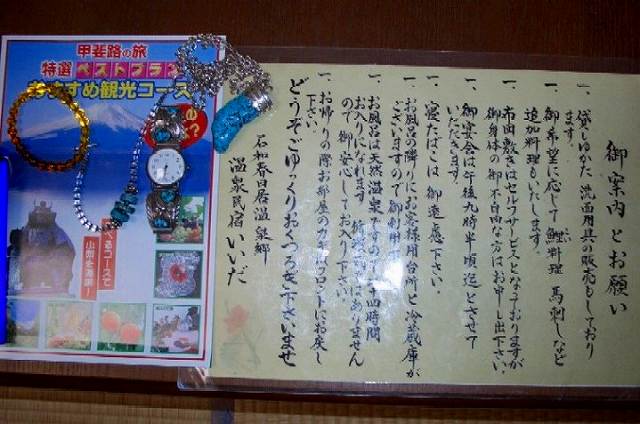 甲斐路の旅
特選 ベストプラン
おすすめ観光コース
るコースで
山梨を満喫!
御案内とお願い
一、貸しゆかた 洗面用具の販売もしており
ます。
一、御希望に応じて 鯉料理 馬刺しなど
追加料理もいたします。
一、布団敷きはセルフサービスとなっておりますが
御身体の御不自由な方はお申し出下さい。
一、御宴会は午後九時半頃迄とさせて
いただきます。
一、寝たばこは御遠慮下さい。
一、お風呂の隣りにお客様用台所と冷蔵庫が
ございますので御利用下さい。
一、お風呂は天然温泉ですので二十四時間
お入りになれます 循環ではありません
ので御安心してお入り下さい。
一、お帰りの際お部屋のカギはフロントにお戻し
下さい。
どうぞごゆっくりおくつろぎ下さいませ
石和春日居温泉郷
温泉民宿 いいだ